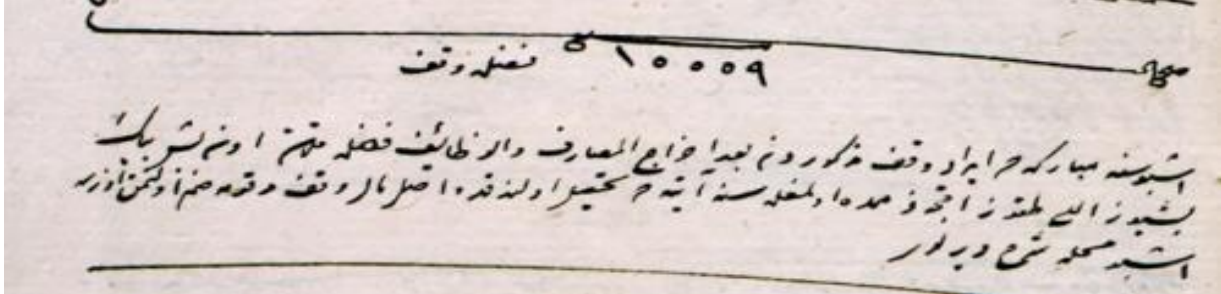 صح ١٥٥٥٩ فضله وقف
اشبو سنه مباركه ده ايراد وقف مذكوردن بعد اخراج المصارف والوظائف فضله قلان اون بش بيك
بشيوز اللي طقوز اقچه اولمغله سنه آتيه ده تحصيل اولندقده اصل مال وقف مرقومه ضم اولنمق اوزره
اشبو محله شرح ويريلور